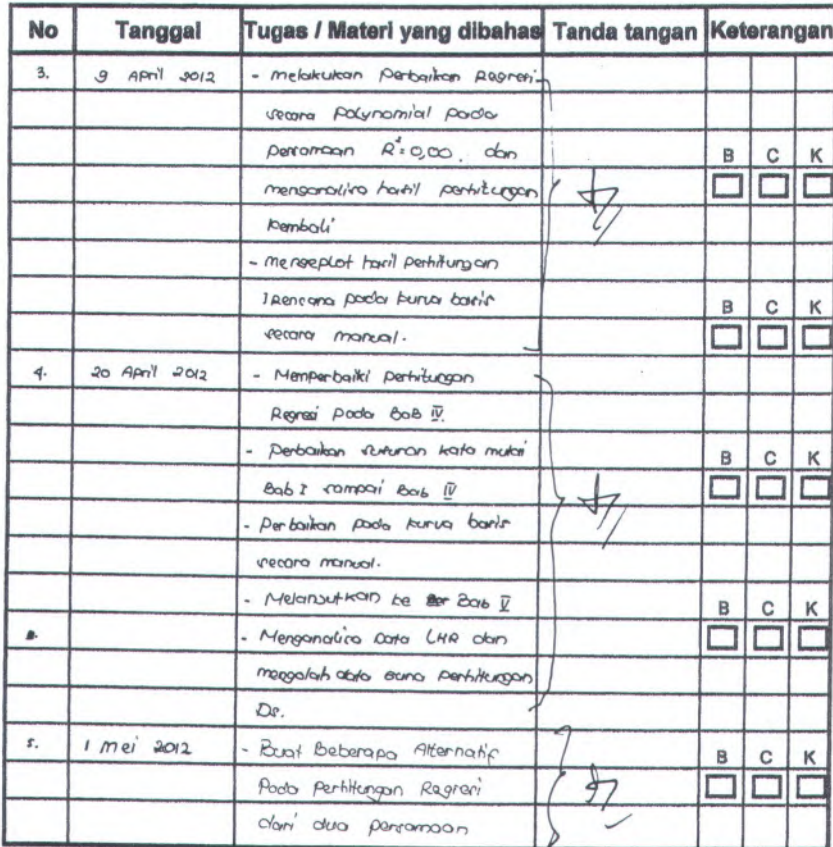 No Tanggal Tugas / Materi yang dibahas Tanda tangan Keterangan
3. 9 April 2012 - melakukan Perbaikan Regresi
secara Polynomial pada
persamaan R²=0,00. dan B C K
menganalisa hasil perhitungan
kembali
- mengeplot hasil Perhitungan
IRencana pada kurva basis B C K
secara manual.
4. 20 April 2012 - Memperbaiki perhitungan
Regresi pada BaB IV.
- Perbaikan susunan kata mulai B C K
Bab I sampai Bab IV
- Perbaikan pada kurva basis
secara manual.
- Melanjutkan ke Bab V B C K
- Menganalisa Data LHR dan
mengolah data guna perhitungan
Ds.
5. 1 Mei 2012 - Buat Beberapa Alternatif B C K
Pada Perhitungan Regresi
dari dua persamaan